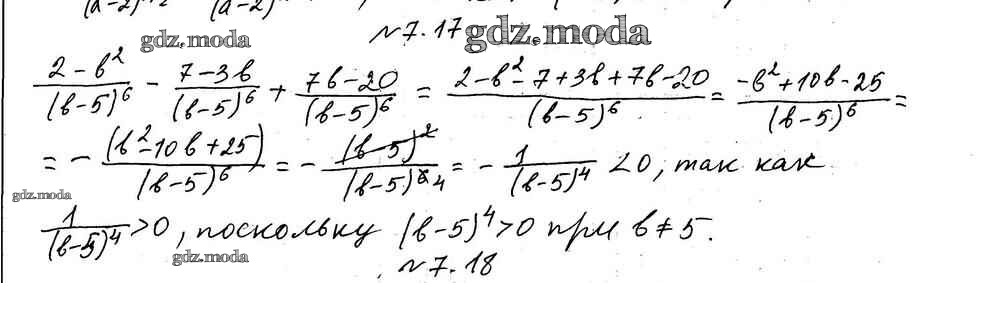 (a-2)    (a-2)
№7.17 gdz.moda
gdz.moda
\frac{2-b^2}{(b-5)^6} - \frac{7-3b}{(b-5)^6} + \frac{7b-20}{(b-5)^6} = \frac{2-b^2-7+3b+7b-20}{(b-5)^6} = \frac{-b^2+10b-25}{(b-5)^6} =
= -\frac{(b^2-10b+25)}{(b-5)^6} = -\frac{(b-5)^2}{(b-5)^{6 4}} = -\frac{1}{(b-5)^4} < 0, так как
gdz.moda
\frac{1}{(b-5)^4} > 0, поскольку (b-5)^4 > 0 при b≠5.
gdz.moda
№7.18